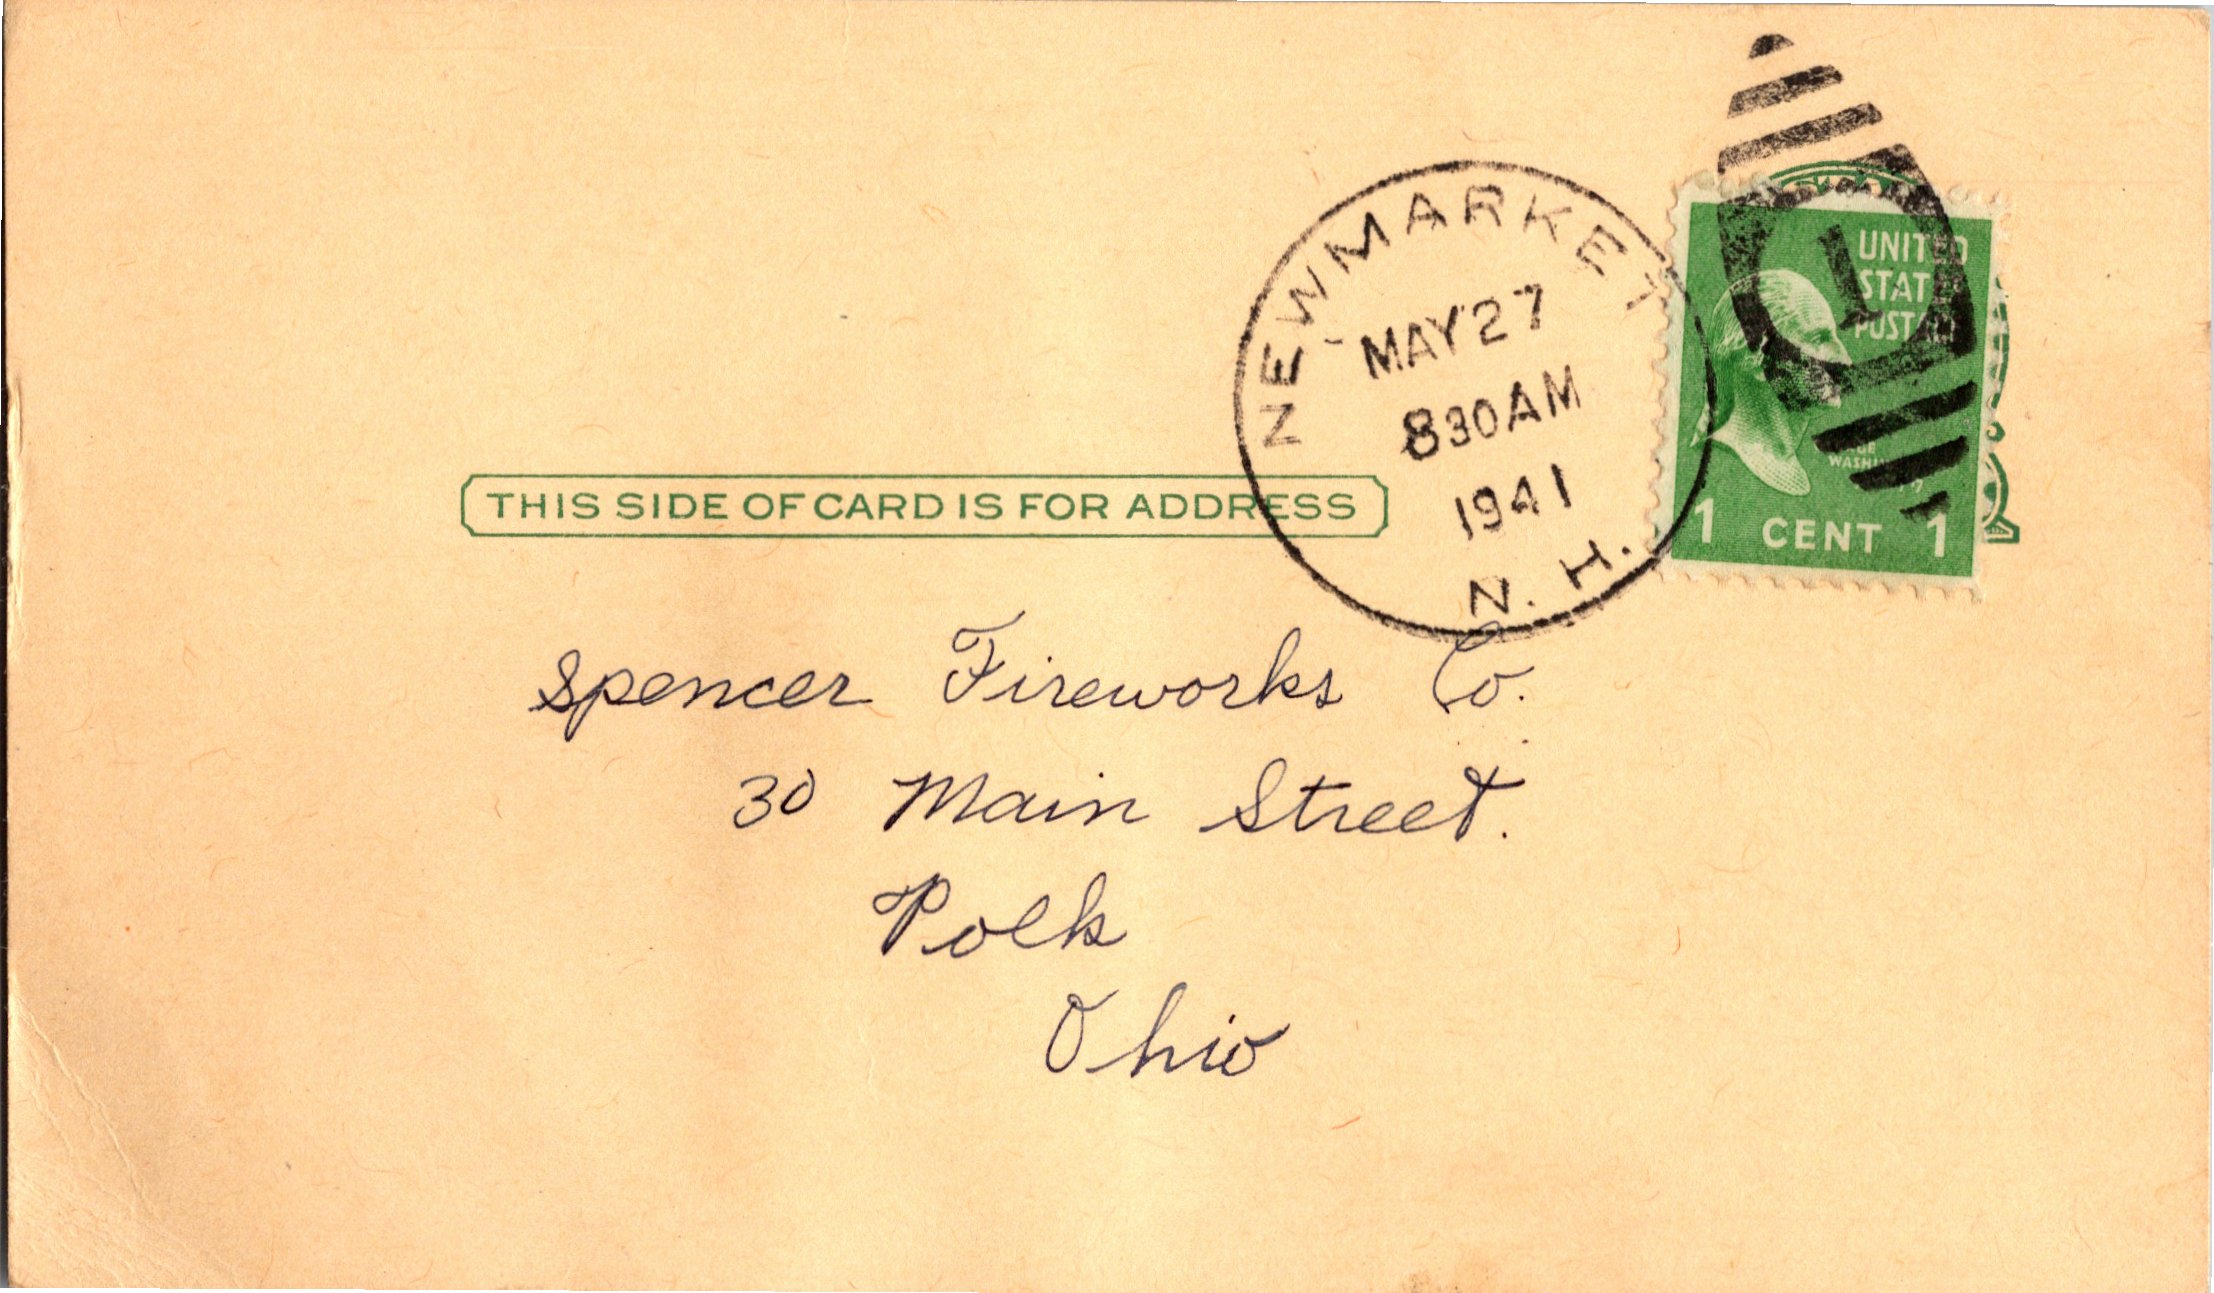 NEWMARKET
MAY 27
830 AM
1941
N. H.
1
UNITED
STATES
POSTAGE
WASHINGTON
1 CENT 1
THIS SIDE OF CARD IS FOR ADDRESS
Spencer Fireworks Co.
30 Main Street.
Polk
Ohio